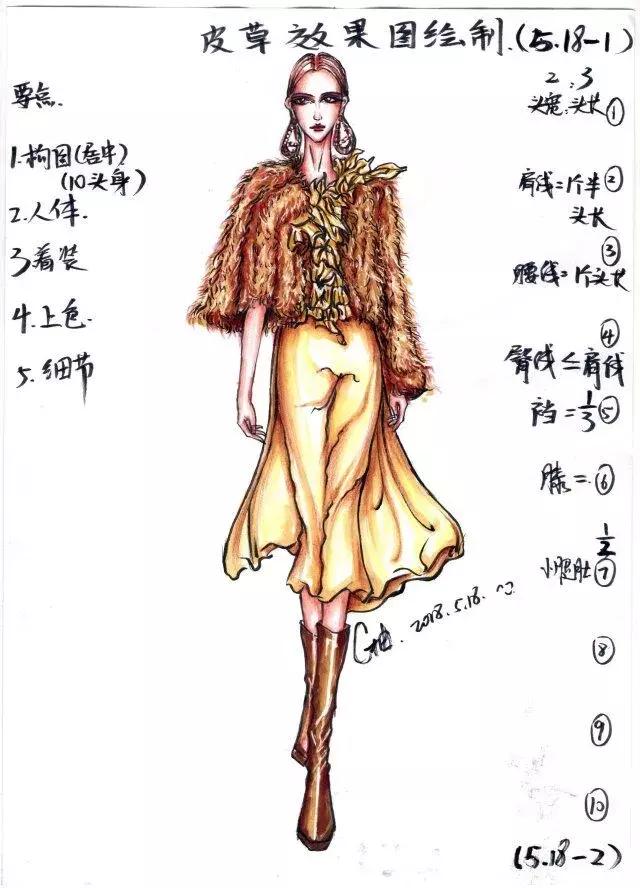 皮草效果图绘制.(5.18-1)
要点.
1.构图(居中)
(10头身)
2.人体.
3着装
4.上色.
5.细节
2:3
头宽:头长①
肩线=1个半②
头长
③
腰线=1个头长
④
臀线≤肩线
裆=1/3⑤
膝=⑥
1/2
小腿肚⑦
2018.5.18.
⑧
⑨
⑩
(5.18-2)